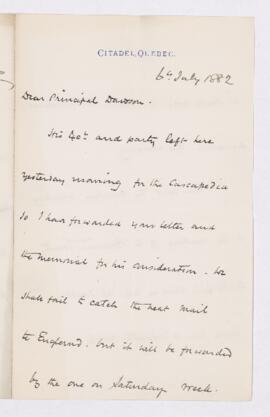 CITADEL, QUEBEC.
6th July 1882
Dear Principal Dawson.
His Ex. and party left here
yesterday morning for the Cascapedia
so I have forwarded your letter and
the Memorial for his consideration. We
shall fail to catch the next mail
to England. but it will be forwarded
by the one on Saturday week.